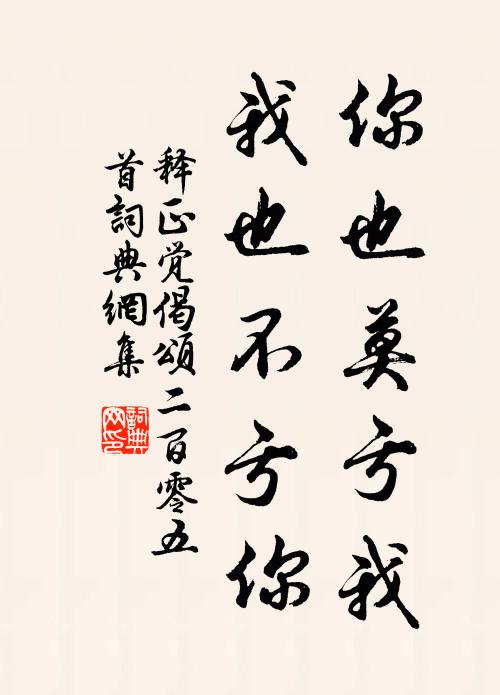 你也莫亏我
我也不亏你
释正觉偈頌二百零五
首詞典網集
詞典网印